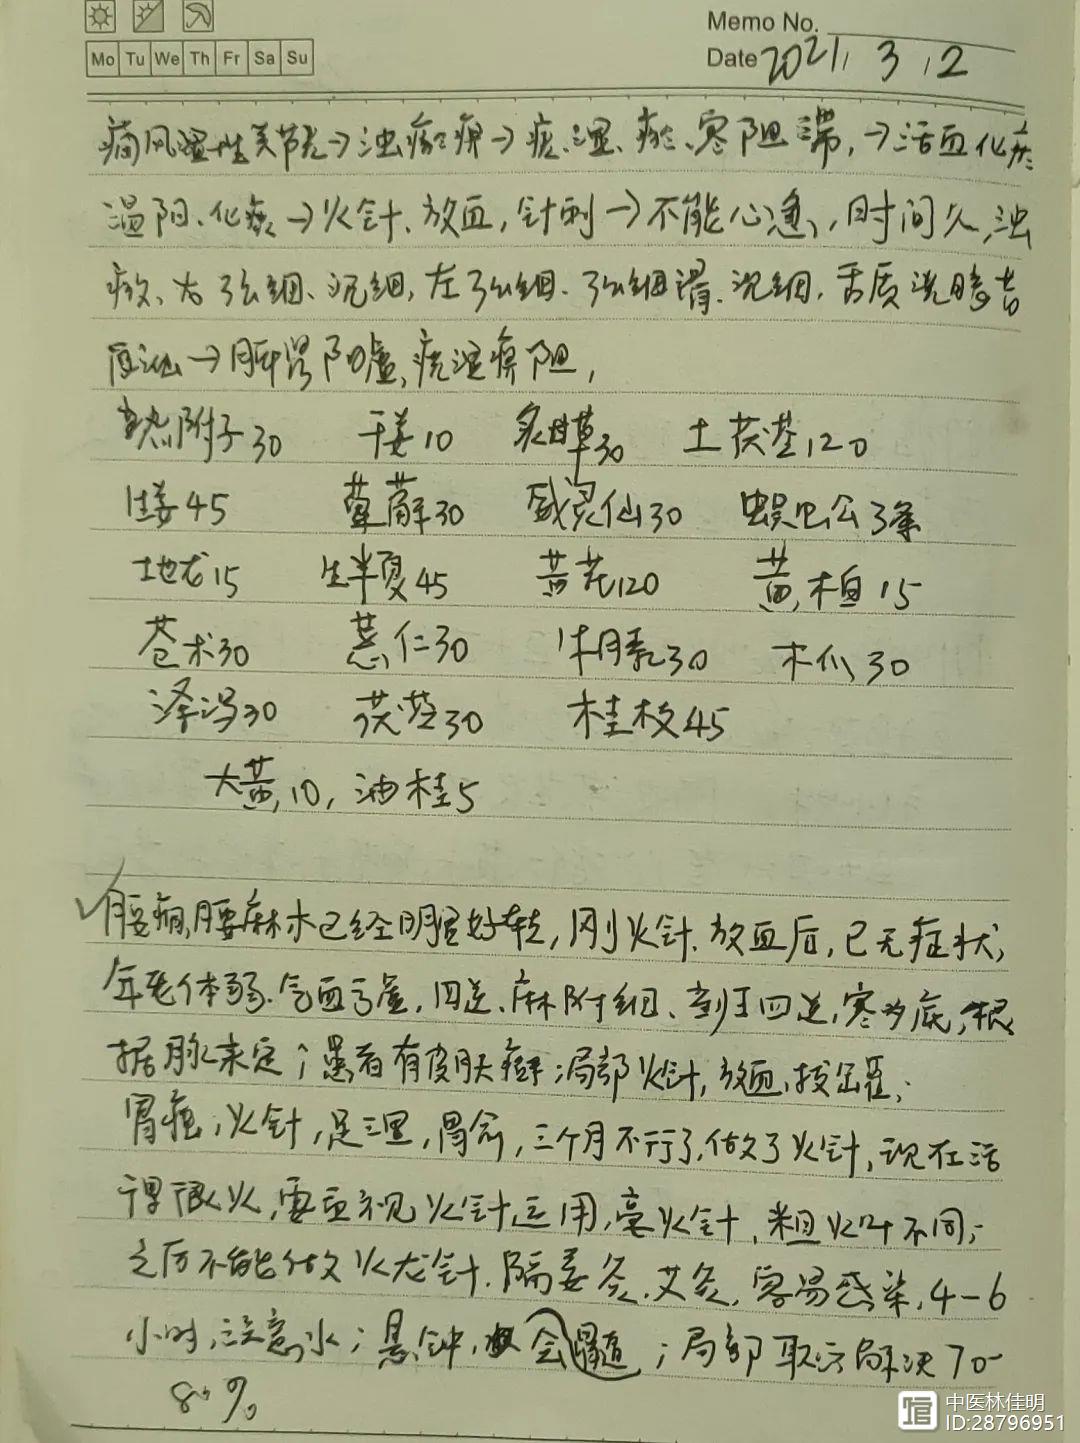 Memo No.
Mo Tu We Th Fr Sa Su
Date 2021, 3, 2
痛风湿性关节炎→浊瘀痹→痰、湿、瘀、寒阻滞,→活血化瘀
温阳、化痰→火针、放血,针刺→不能心急,时间久,浊
瘀、右弦细、沉细,左弦细、弦细滑、沉细,舌质淡胖苔
厚→脾肾阳虚、痰湿痹阻,
熟附子30 干姜10 炙甘草30 土茯苓120
生姜45 萆薢30 威灵仙30 蜈蚣3条
地龙15 生半夏45 黄芪120 黄柏15
苍术30 薏仁30 牛膝30 木瓜30
泽泻30 茯苓30 桂枝45
大黄10,油桂5
腰痛,腰麻木已经明显好转,刚火针、放血后,已无症状,
年老体弱、气血亏虚,四逆、麻附细、当归四逆,寒为底,根
据脉来定;患者有皮肤癣;局部火针,放血,拔罐;
胃痛,火针,足三里,胃俞,三个月不行了,做了火针,现在活
得很火,要重视火针运用,毫火针、粗火针不同;
之后不能做火龙针、隔姜灸、艾灸,容易感染,4-6
小时,注意水;悬钟,会髓;局部取穴解决70-
80%
中医林佳明
ID:28796951